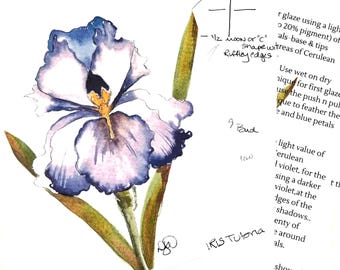 - ½ moon or "C"
shape w/
Ruffley edges
Bud
IRIS Tuberia
r glaze using a ligh
o 20% pigment) of
s base & tips
reas of Cerulean
Use wet on dry
nique for first glaze
use the push n pul
ue to feather the
e and blue petals
e light value of
erulean
d violet, for the
sing a darker
violet,at the
edges of the
shadows..
enty of
e around
als.